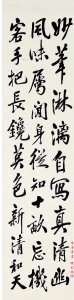 妙筆淋漓自寫真清幽
風味屬閒身從知十畝忘機
客手把長鑱莫色新 清和天